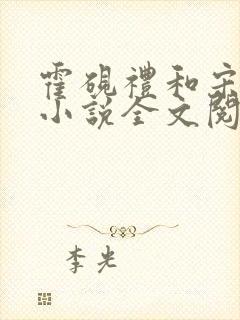 霍砚禮和宋
小说全文阅
李光